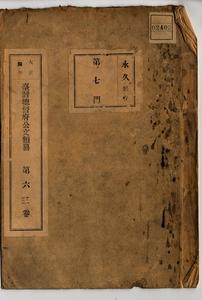 02402
永久保存
第七門
大正四年
臺灣總督府公文類纂 第六三卷